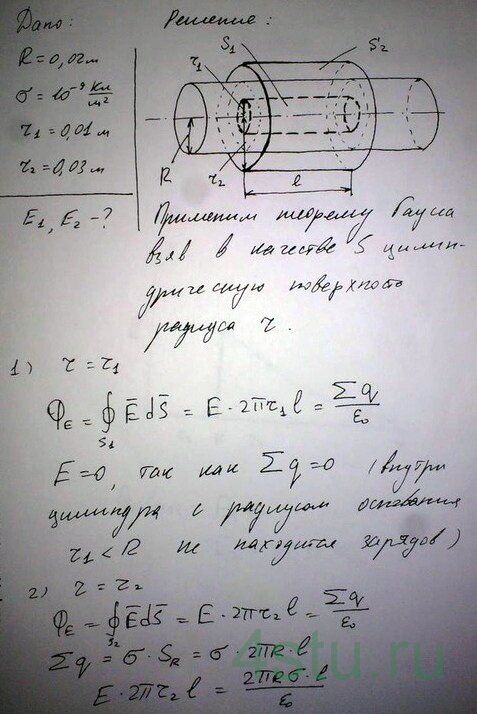 Дано:
Решение:
R = 0,02 м
σ = 10⁻⁹ Кл/м²
r₁ = 0,01 м
r₂ = 0,03 м
E₁, E₂ - ?
S₁
S₂
r₁
R
r₂
l
Применим теорему Гауса
взяв в качестве S цилин-
дрическую поверхность
радиуса r.
1) r = r₁
Φ_E = ∮_S₁ E̅ dS̅ = E · 2πr₁ l = Σq/ε₀
E = 0, так как Σq = 0 (внутри
цилиндра с радиусом основания
r₁ < R не находится зарядов)
2) r = r₂
Φ_E = ∮_S₂ E̅ dS̅ = E · 2πr₂ l = Σq/ε₀
Σq = σ · S_R = σ · 2πR · l
E · 2πr₂ l = 2πRσ · l/ε₀
4stu.ru